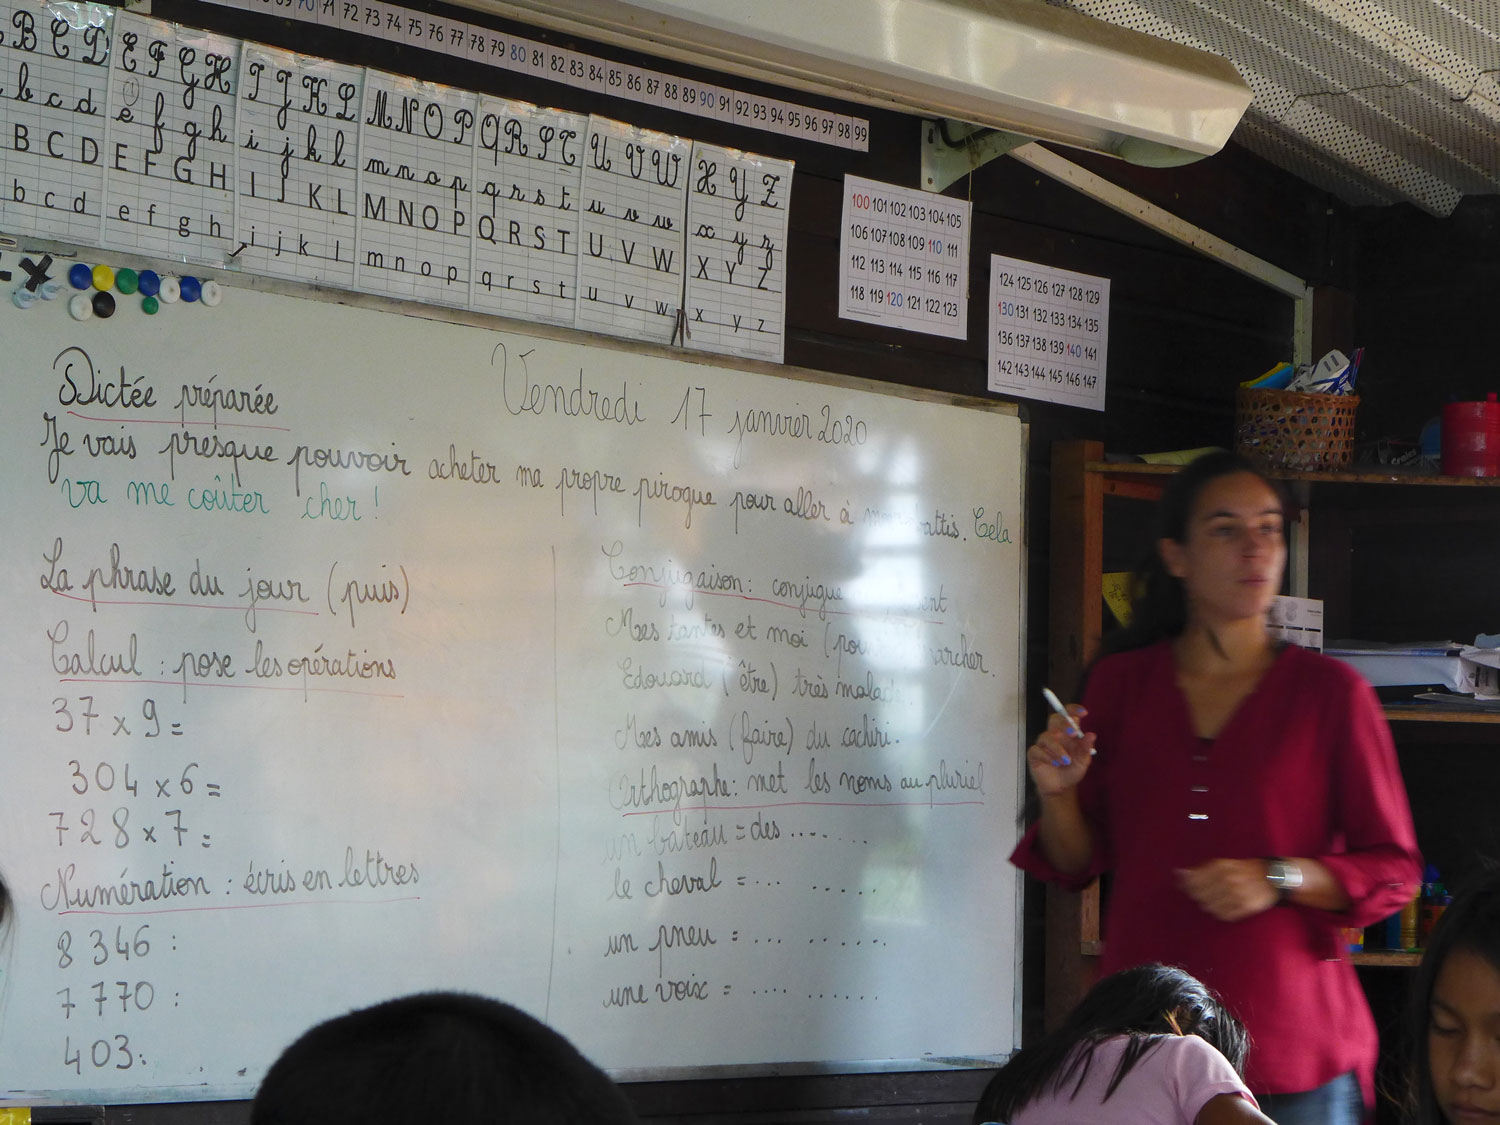 70 71 72 73 74 75 76 77 78 79 80 81 82 83 84 85 86 87 88 89 90 91 92 93 94 95 96 97 98 99
B C D E F G H I J K L M N O P Q R S T U V W X Y Z
b c d e f g h i j k l m n o p q r s t u v w x y z
B C D E F G H I J K L M N O P Q R S T U V W X Y Z
b c d e f g h i j k l m n o p q r s t u v w x y z
100 101 102 103 104 105
106 107 108 109 110 111
112 113 114 115 116 117
118 119 120 121 122 123
124 125 126 127 128 129
130 131 132 133 134 135
136 137 138 139 140 141
142 143 144 145 146 147
Vendredi 17 janvier 2020
Dictée préparée
Je vais presque pouvoir acheter ma propre pirogue pour aller à. Cela
va me coûter cher !
La phrase du jour (puis)
Calcul : pose les opérations
37 x 9 =
304 x 6 =
728 x 7 =
Numération : écris en lettres
8 346 :
7 770 :
403 :
Conjugaison : conjugue
Mes tantes et moi
Edouard (être) très malade.
Mes amis (faire) du cachiri.
Orthographe : met les noms au pluriel
un bateau = des .... ...
le cheval = ... .....
un pneu = ... ......
une voix = .... ......